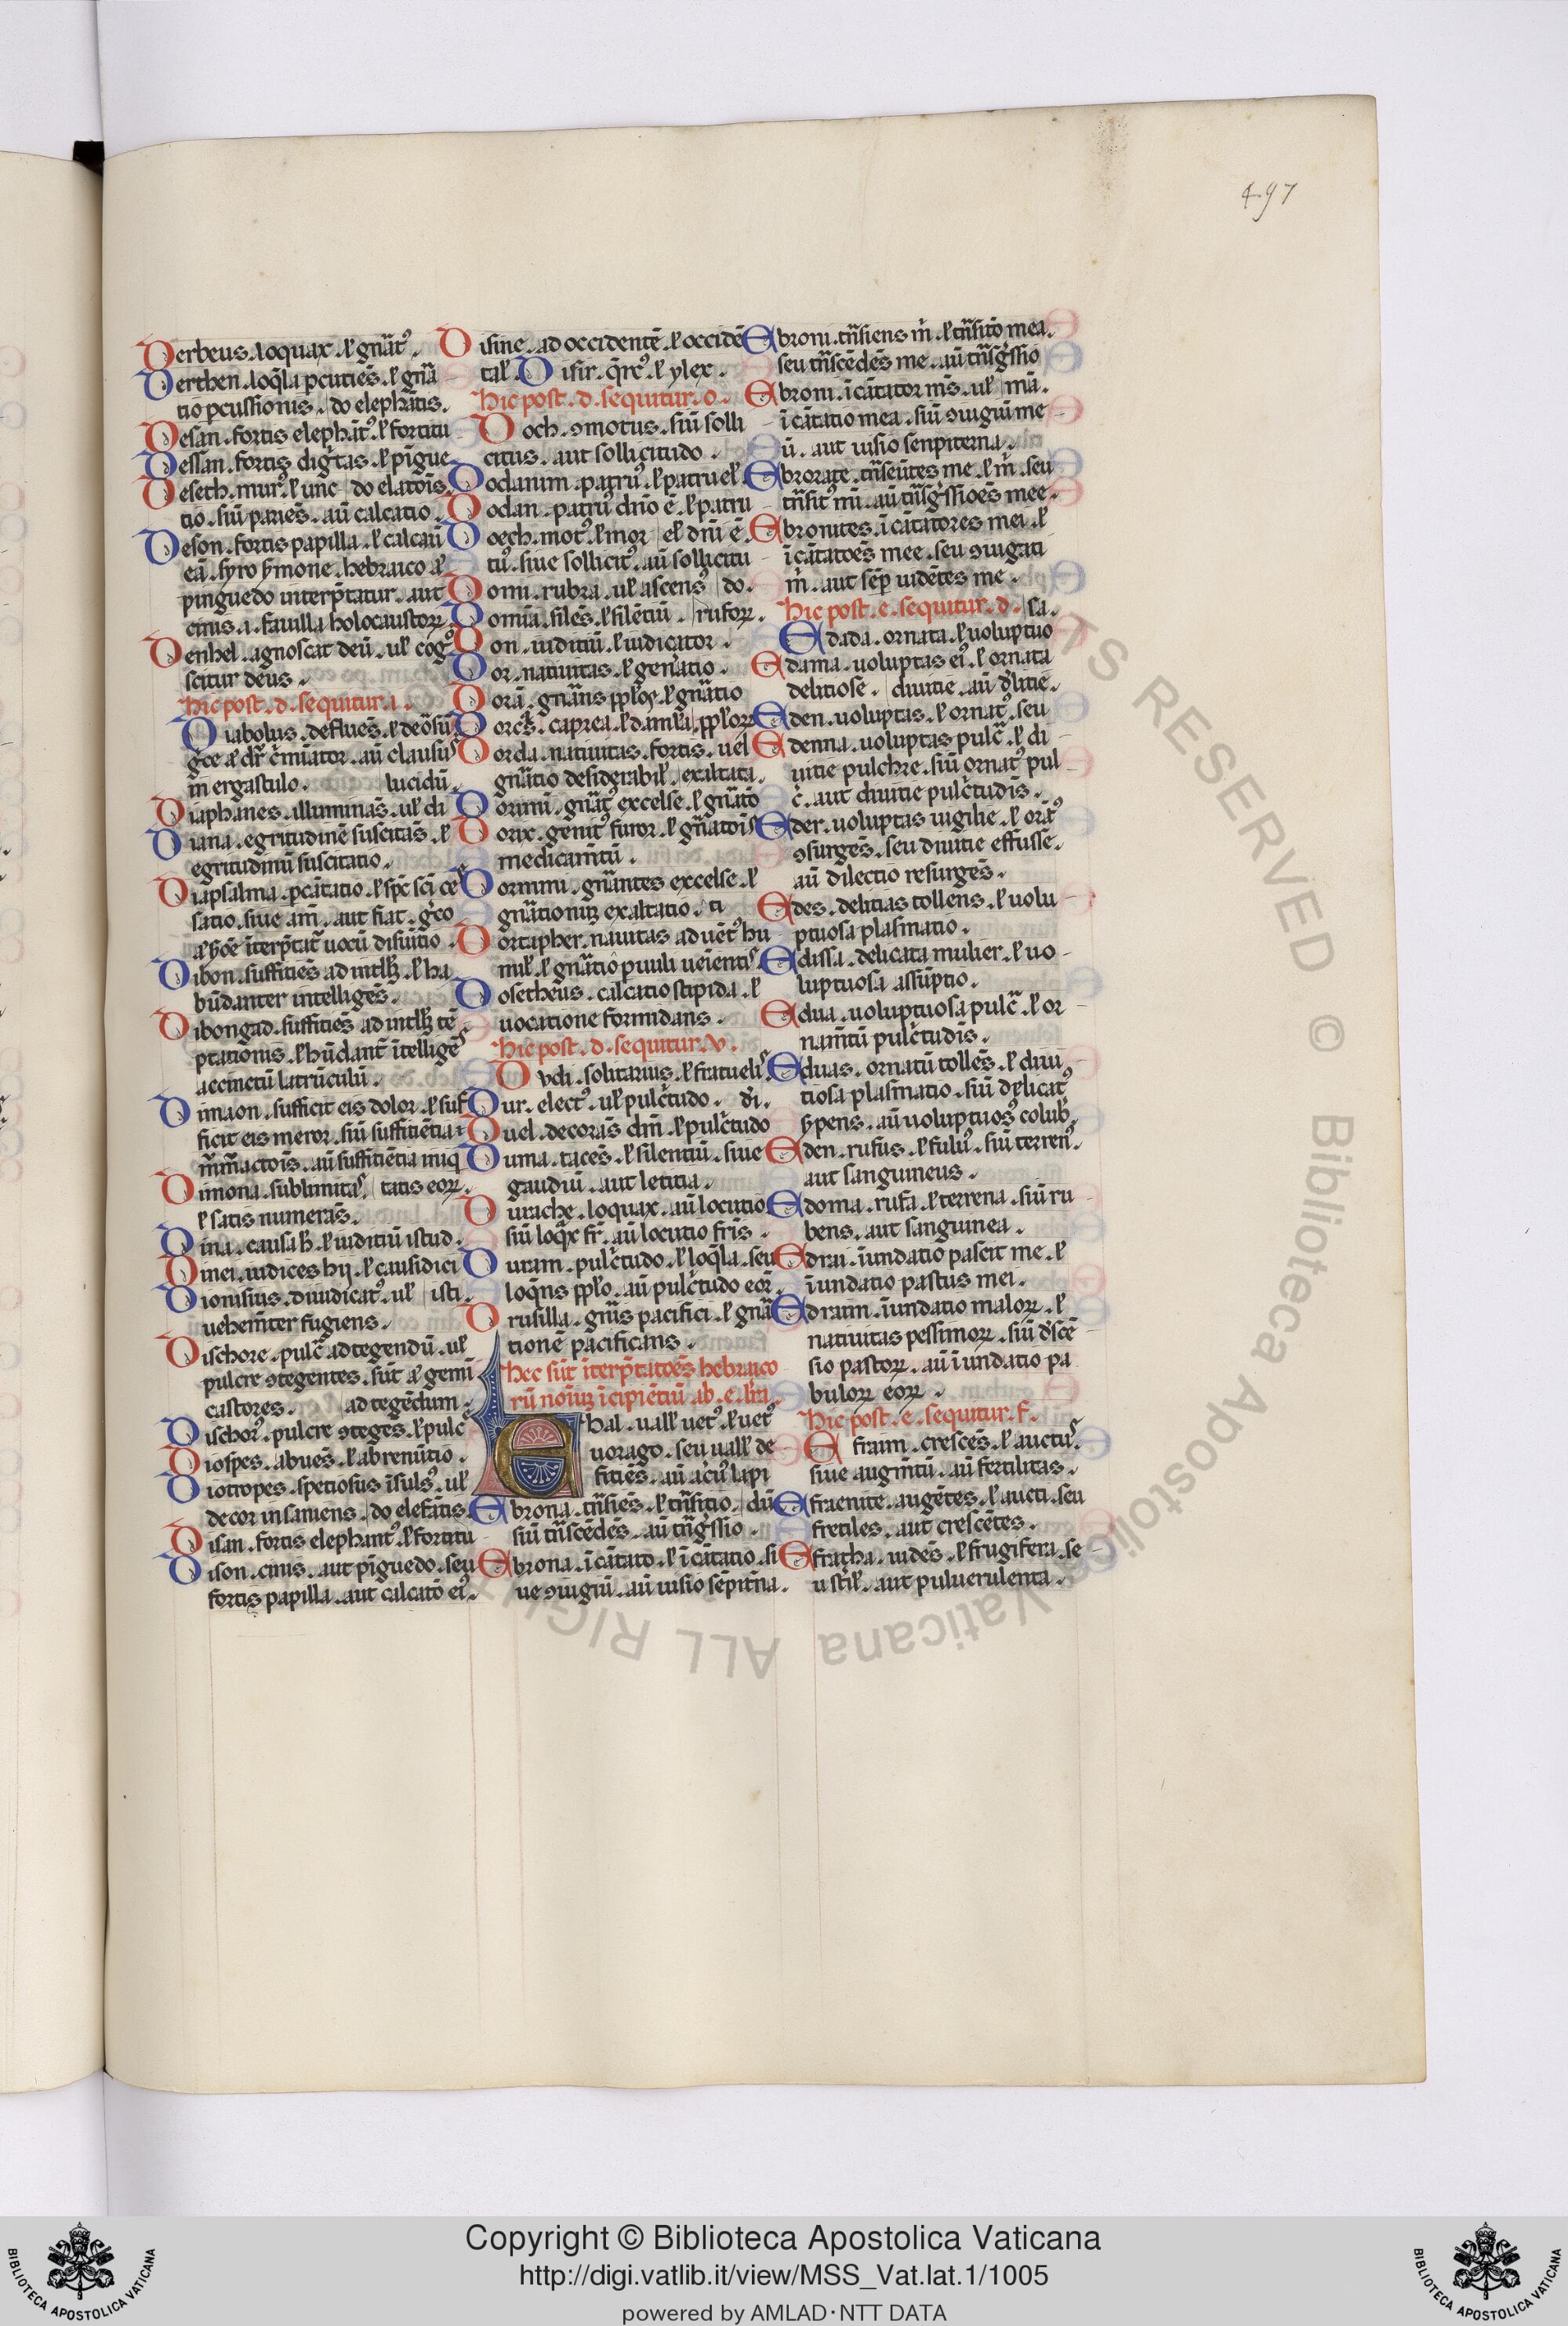 497
Derbeus. loquax. ł gnāt᷒.
Derthen. loq̄la pcutiēs. ł gnā
tio pcussionis. do elephātis.
Desan. fortis elephāt᷒. ł fortitu
Dessan. fortis dig̃tas. ł pīgue
Deseth. mur᷒. ł unc̄ do elatōis.
tio. siū pariēs. aū calcatio.
Deson. fortis papilla. ł calcaū
eā. syro s̄mone. hebraico
pinguedo interp̄tatur. aut
cinis. i. fauilla holocaustoꝝ.
Denhel. agnoscat deū. uł cog᷒
scitur deus.
hic post. d. sequitur. i.
Diabolus. defluēs. ł deōsū
in ergastulo. lucidū.
Diaphanes. illuminās. uł di
Diana. egritudinē suscitās. ł
egritudinū suscitatio.
Diapsalma. pcātatio. ł sp̄c sci ce
satio. siue am̄. aut fiat. gͨco
Dibon. sufficiēs ad intłꝫ. ł ha
būdanter intelligēs.
Dibongad. sufficiēs ad intłꝫ tē
ptationis. ł hūdant̄ ītelligē᷒
accinctū latrūculū.
Dimaon. sufficit eis dolor. ł suf
ficit eis meror. siū sufficiētia
aū sufficiētia iniq
Dimona. sublimita᷒. tatis eoꝝ.
ł satis numerās.
Dina. causa ł iuditiū istud.
Dinei. iudices hij. ł causidici
Dionisius. diiudicat᷒. uł isti.
uehem̄ter fugiens.
Dischore. pulc̄ ad tegendū. uł
pulcre ꝯtegentes. sūt gemī
castores. ad tegēdum.
Dischor᷒. pulcre ꝯtegēs. ł pulc̄
Diospes. abuēs. ł abrenūtio.
Diotropes. spetiosus īsuls᷒. uł
decor insaniens. do elefātis.
Disan. fortis elephant᷒. ł fortitu
Dison. cinis. aut pīguedo. seu
fortis papilla. aut calcatō ei᷒.
Disine. ad occidentē. ł occidē
tał. Disir. q̄rc᷒. ł ylex.
hic post. d. sequitur. o.
Doch. ꝯmotus. siū solli
citus. aut sollicitudo.
Dodanim. patru᷒. ł patrueł.
Dodan. patru᷒ dn̄o ē. ł patru
Doech. mot᷒. ł mor eł dn̄i ē.
tu᷒. siue sollicit᷒. aū sollicitu
Domi. rubra. uł ascens᷒ do.
Domia. silēs. ł silētiū. rufoꝝ.
Don. iuditiū. ł iudicator.
Dor. natiuitas. ł gen̄atio.
Dorā. gnāns ppło᷒. ł gnātio
Dorcas. caprea. ł damła. ppłoꝝ
Dorda. natiuitas. fortis. uel
gnātio desiderabił. exaltata.
Dorimi. gnāt᷒ excelse. ł gnātō
Dorix. genit᷒ furor. ł gnātois
medicam̄tū.
Dormim. gnāntes excelse. ł
gnātioniꝫ exaltatio. ti
Dortapher. nāuitas aduēt᷒ hu
mił. ł gnātio puuli ueienti᷒.
Dosetheus. calcatio stipida. ł
uocatione formidans.
hic post. d. sequitur. v.
Dvdi. solitarius. ł fratueli᷒.
Dur. elect᷒. uł pulc̄tudo. dī.
Duel. decorās dm̄. ł pulc̄tudo
Duma. tacēs. ł silentiū. siue
gaudiū. aut letitia.
Durache. loquax. aū locutio
siū loq̄x fr̄. aū locutio fr̄is.
Duram. pulc̄tudo. ł loq̄la. seu
loq̄ns ppło. aū pulc̄tudo eoꝝ.
Drusilla. gn̄s pacifici. ł gnā
tionē pacificans.
hec sūt īterp̄tatōes hebraico
rū noīuꝫ īcipiētiū. ab. e. lr̄a.
Ebal. uałł uet᷒. ł uet᷒
uorago. seu uałł de
ficiēs. aū acu᷒ lapi
Ebrona. tn̄siēs. ł tn̄sitio. dū
siū tn̄scēdēs. aū tn̄sg̃ssio.
Ebrona. īcātato. ł īcātatio. si
ue ꝯiugiū. aū uisio sēpitn̄a.
Ebroni. tn̄siens m̄. ł tn̄sitō mea.
seu tn̄scēdēs me. aū tn̄sg̃ssio
Ebroni. īcātator m̄s. uł mā.
īcātatio mea. siū ꝯiugiū me
ū. aut uisio senpiterna.
Ebrorate. tn̄seūtes me. ł m̄. seu
tn̄sit᷒ mī. aū tn̄sg̃ssioēs mee.
Ebronites. īcātatores mei. ł
īcātatoēs mee. seu ꝯiugati
m̄. aut sēp uidētes me.
hic post. e. sequitur. d. sa.
Edada. ornata. ł uoluptuo
Edama. uoluptas ei᷒. ł ornata
delitiose. diuitie. aū d̄litie.
Eden. uoluptas. ł ornat᷒. seu
Edenna. uoluptas pulc̄. ł di
uitie pulchre. siū ornat᷒ pul
c̄. aut diuitie pulc̄tudis.
Eder. uoluptas uigilie. ł orāt᷒
ꝯsurgēs. seu diuitie effusse.
aū dilectio resurgēs.
Edes. delitias tollens. ł uolu
ptuosa plasmatio.
Edissa. delicata mulier. ł uo
luptuosa assūptio.
Edua. uoluptuosa pulc̄. ł or
nam̄tū pulc̄tudis.
Eduas. ornatū tollēs. ł diui
tiosa plasmatio. siū delicat᷒
s̄pens. aū uoluptuos᷒ colub̄.
Eden. rufus. ł fulu᷒. siū terren᷒.
aut sanguineus.
Edoma. rufa. ł terrena. siū ru
bens. aut sanguinea.
Edrai. īundatio pascit me. ł
īundatio pastus mei.
Edraim. īundatio maloꝝ. ł
natiuitas pessimoꝝ. siū d̄scē
sio pastoꝝ. aū īundatio pa
buloꝝ eoꝝ.
hic post. e. sequitur. f.
Efraim. crescēs. ł auctu᷒.
siue augm̄tū. aū fertilitas.
Efraenite. augētes. ł aucti. seu
fretiles. aut crescētes.
Efratha. uidēs. ł frugifera. se
u stił. aut puluerulenta.
ALL RIGHTS RESERVED © Biblioteca Apostolica Vaticana
Copyright © Biblioteca Apostolica Vaticana
http://digi.vatlib.it/view/MSS_Vat.lat.1/1005
powered by AMLAD·NTT DATA
BIBLIOTECA APOSTOLICA VATICANA
BIBLIOTECA APOSTOLICA VATICANA